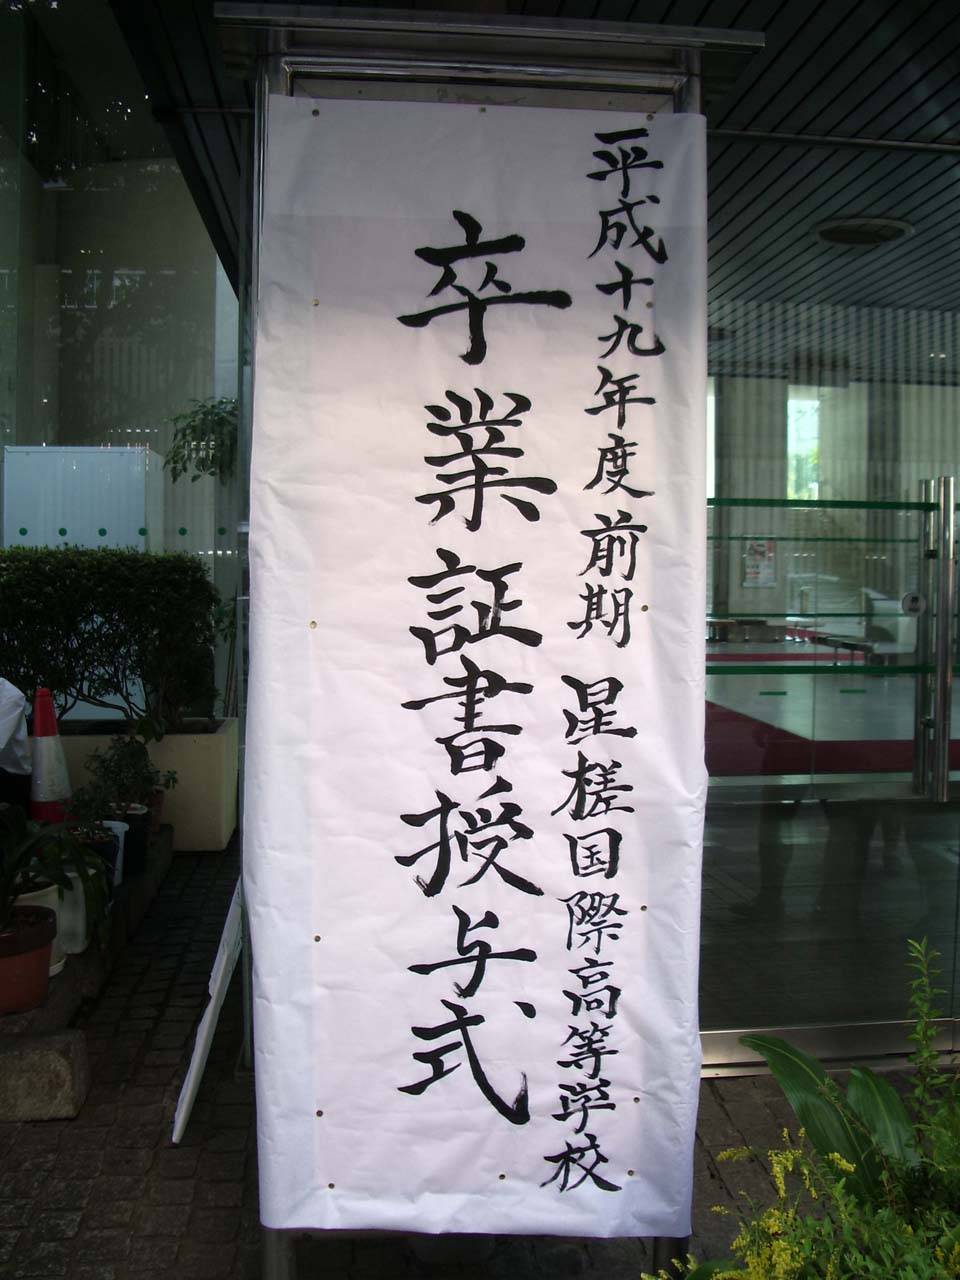 平成十九年度前期 星槎国際高等学校
卒業証書授与式